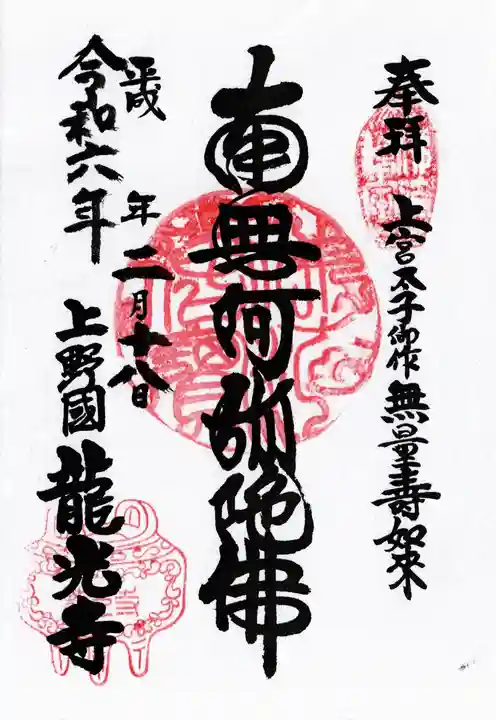 奉拝
上宮太子御作 無量壽如来
南無阿弥陀佛
平成 年 二月十八日
令和六年
上野國 龍光寺